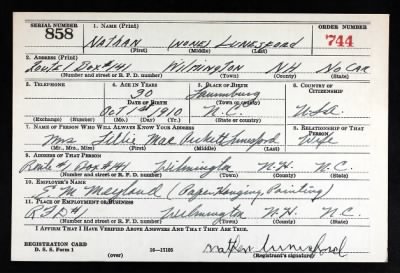 SERIAL NUMBER
858
1. NAME (Print)
NATHAN LUNSFORD
(First) (Middle) (Last)
ORDER NUMBER
744
2. ADDRESS (Print)
Route 1 Box #141 Wilmington NH No Car
(Number and street or R. F. D. number) (Town) (County) (State)
3. TELEPHONE
4. AGE IN YEARS
30
DATE OF BIRTH
Oct 1st 1910
(Exchange) (Number) (Mo.) (Day) (Yr.)
5. PLACE OF BIRTH
(Town or county)
N.C.
(State or country)
6. COUNTRY OF CITIZENSHIP
USA
7. NAME OF PERSON WHO WILL ALWAYS KNOW YOUR ADDRESS
Mrs Lillie Mae Puckett Lunsford
(Mr., Mrs., Miss) (First) (Middle) (Last)
8. RELATIONSHIP OF THAT PERSON
Wife
9. ADDRESS OF THAT PERSON
Route #1 Box #141 Wilmington N.H. N.C.
(Number and street or R. F. D. number) (Town) (County) (State)
10. EMPLOYER'S NAME
E. M. (Paper Hanging, Painting)
11. PLACE OF EMPLOYMENT OR BUSINESS
RFD #1 Wilmington N.H. N.C.
(Number and street or R. F. D. number) (Town) (County) (State)
I AFFIRM THAT I HAVE VERIFIED ABOVE ANSWERS AND THAT THEY ARE TRUE.
REGISTRATION CARD
D. S. S. Form 1
(over)
16—17105
Nathan Lunsford
(Registrant's signature)